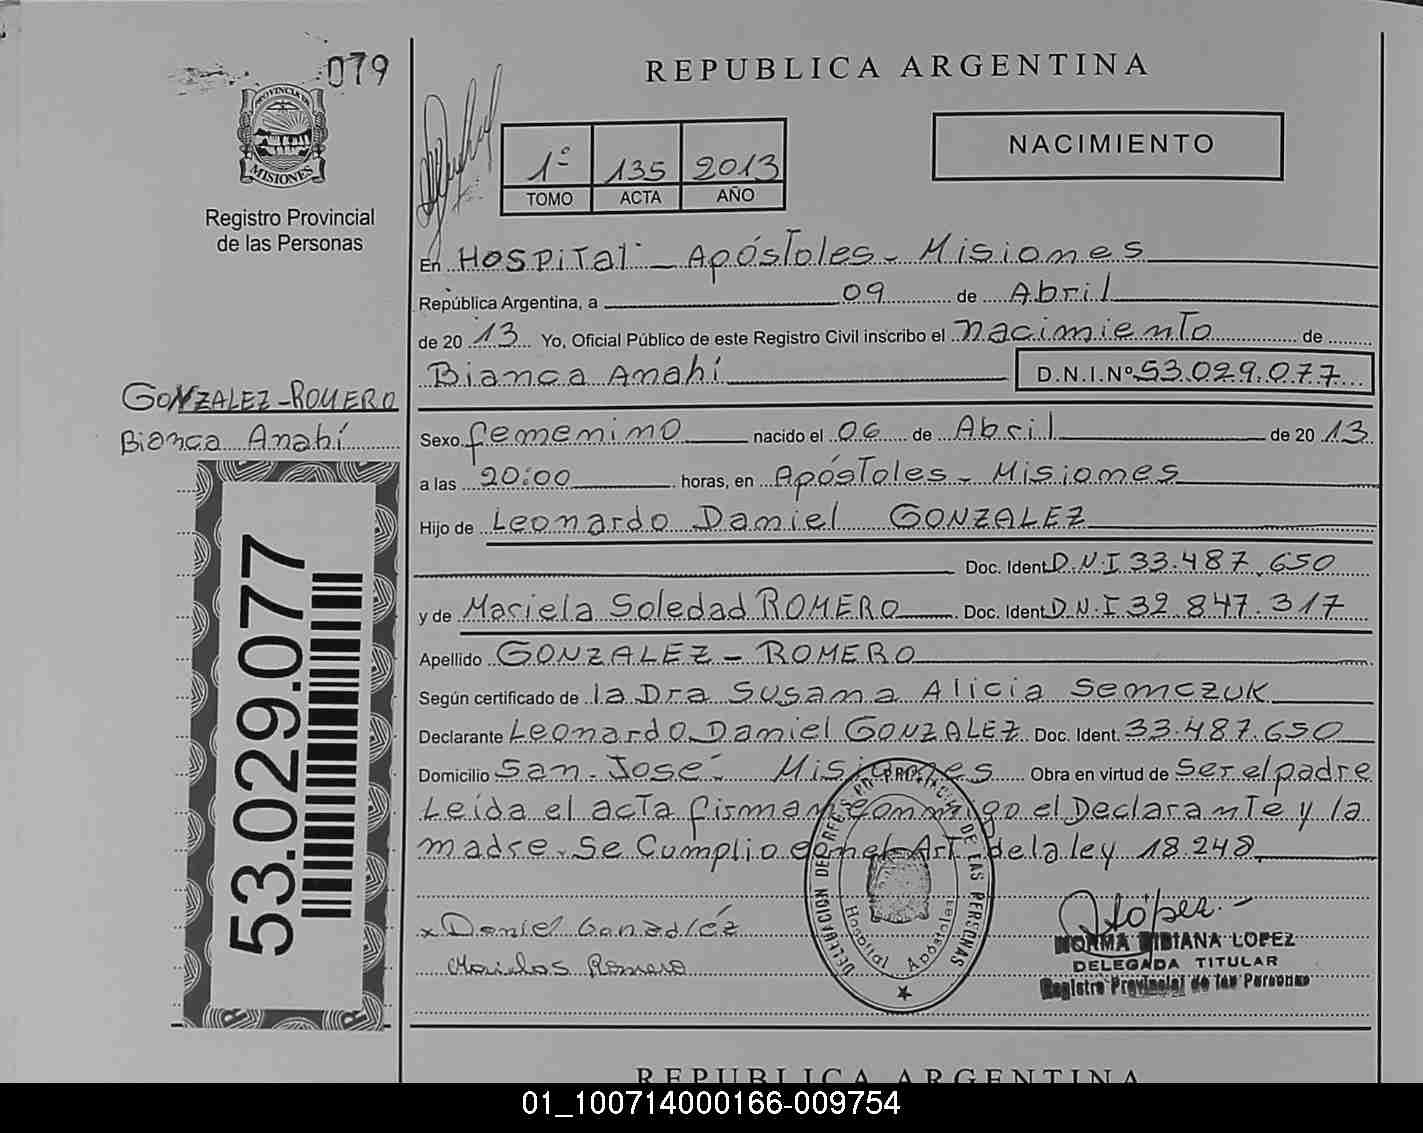 079
PROVINCIA DE
MISIONES
Registro Provincial
de las Personas
REPUBLICA ARGENTINA
1º 135 2013
TOMO ACTA AÑO
NACIMIENTO
En Hospital - Apóstoles - Misiones
República Argentina, a 09 de Abril
de 20 13 Yo, Oficial Público de este Registro Civil inscribo el nacimiento de
Bianca Anahí D.N.I.Nº 53.029.077
GONZALEZ-ROMERO
Bianca Anahí
Sexo femenino nacido el 06 de Abril de 20 13
a las 20:00 horas, en Apóstoles - Misiones
Hijo de Leonardo Daniel GONZALEZ
Doc. Ident. D.N.I 33.487.650
y de Mariela Soledad ROMERO Doc. Ident. D.N.I 32.847.317
Apellido GONZALEZ - ROMERO
Según certificado de la Dra Susana Alicia Semczuk
Declarante Leonardo Daniel GONZALEZ Doc. Ident. 33.487.650
Domicilio San José - Misiones Obra en virtud de Ser el padre
Leída el acta firman conmigo el Declarante y la
madre. Se Cumplio con el Art de la ley 18.248
53.029.077
x Daniel Gonzalez
Romero
DE LAS PERSONAS
Hospital Apóstoles
López
NORMA BIBIANA LOPEZ
DELEGADA TITULAR
Registro Provincial de las Personas
REPUBLICA ARGENTINA
01_100714000166-009754